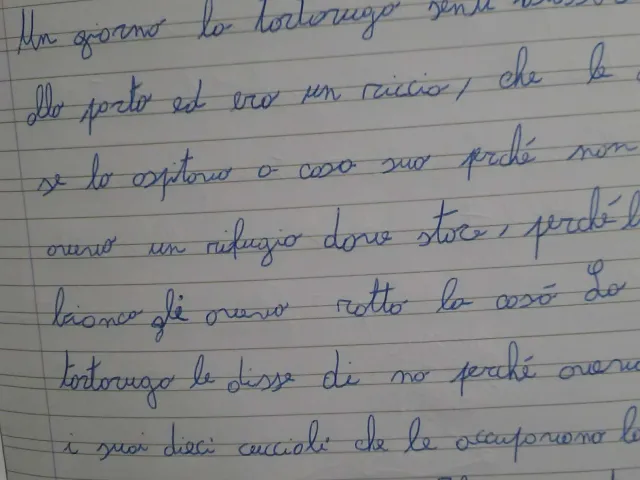 Un giorno la tartaruga sentì
alla porta ed era un riccio, che le
se lo ospitava a casa sua perché non
aveva un rifugio dove stare, perché
bianca gli aveva rotto la casa La
tartaruga le disse di no perché
i suoi dieci cuccioli che le occupavano